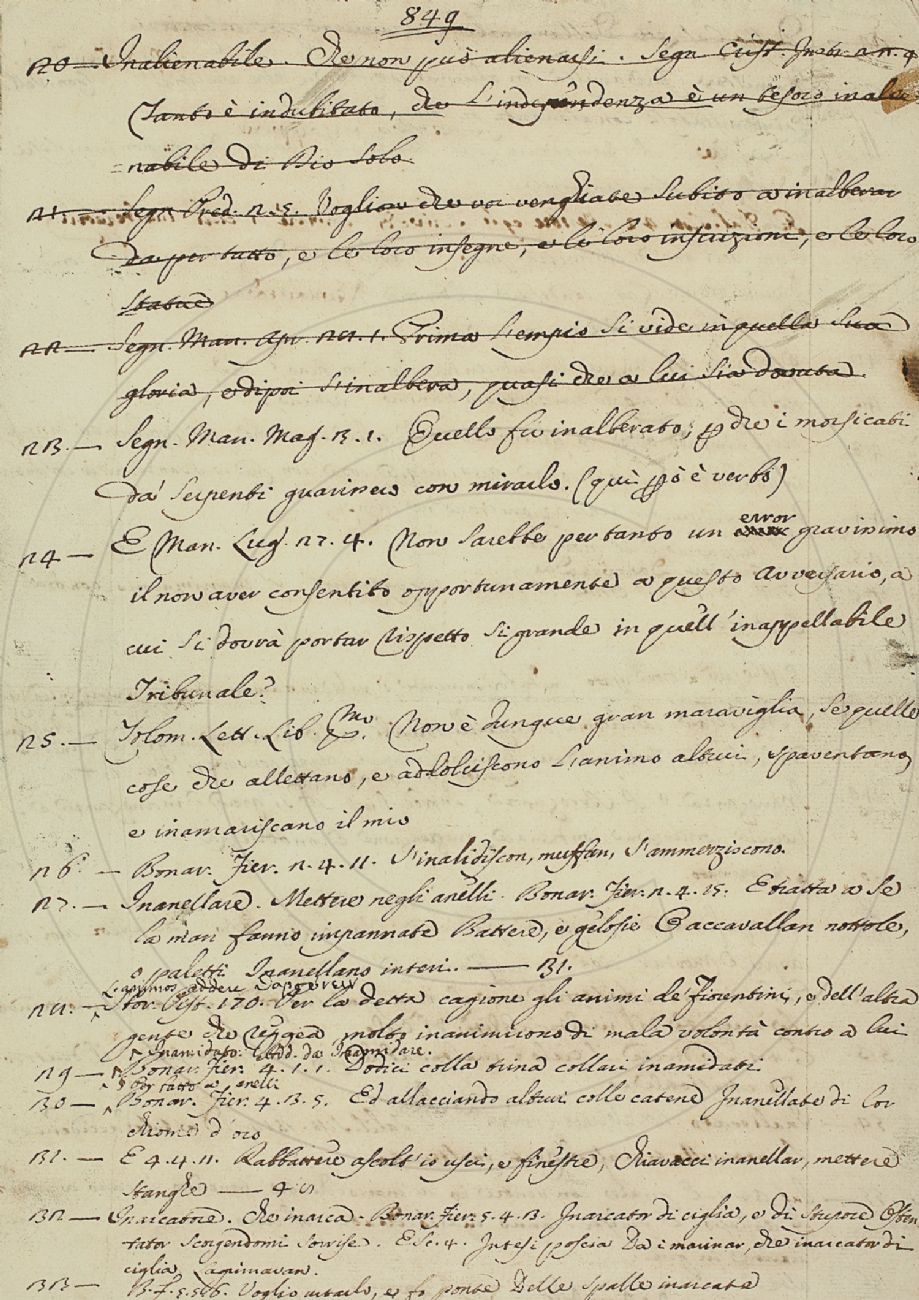 849
20 — Inalienabile. Che non può alienarsi. Segn. Crist. Instr. 2. n. 4
Tanto è indubitato, che l'independenza è un tesoro inalie-
=nabile di Dio solo
21 — Segn. Pred. 2. 5. Voglio che voi venghiate subito a inalberar
da per tutto, e le loro insegne, e le loro inscrizioni, e le loro
statue
22 — Segn. Man. Apr. 1. Prima l'empio si vide in quella sua
gloria, e dipoi s'inalbera, quasi che a lui sia dovuta
23. — Segn. Man. Mag. 3. 1. Quello fu inalberato, che i morsicati
da' serpenti guarissero con mirarlo. (quì può è verbo)
24 — E Man. Lug. 27. 4. Non sarebbe per tanto un error gravissimo
il non aver consentito opportunamente a questo avversario, a
cui si dovrà portar rispetto sì grande in quell'inappellabile
Tribunale?
25. — Tolom. Lett. Lib. Non è dunque gran maraviglia, se quelle
cose che allettano, e addolciscono l'animo altrui, spaventano,
e inamariscano il mio
26. — Bonar. Fier. 2. 4. 11. S'inalidiscon, muffan, s'ammerziscono.
27. — Inanellare. Mettere negli anelli. Bonar. Fier. 2. 4. 15. E tratta a se
la man fanno impannate Battere, e gelosie Caccavallan nottole,
o paletti Inanellano interi. — 31.
Stor. Pist. 170. Per la detta cagione gli animi de' Fiorentini, e dell'altra
gente che reggea molto inanimirono di mala volontà contro a lui
Inamidato. Add. da Inamidare.
29 — Bonar. Fier. 4. 1. 1. Dodici colla trina collari inamidati.
Per fatto a anelli
30 — Bonar. Fier. 4. 3. 5. Ed allacciando altrui colle catene Inanellate di lor
chiome d'oro
31. — E 4. 4. 11. Rabbattere ascolt'io usci, e finestre, Chiavacci inanellar, mettere
stanghe —
32 — Inarcatore. Che inarca. Bonar. Fier. 5. 4. 3. Inarcator di ciglia, e di stupore Osten-
tator scorgendomi sorrise. E Sc. 4. Intesi poscia Da i marinar, che inarcator di
ciglia Lagrimavan.
33 — B. f. 5. 5. 6. Voglio urtarlo, e fo ponte Delle spalle inarcate